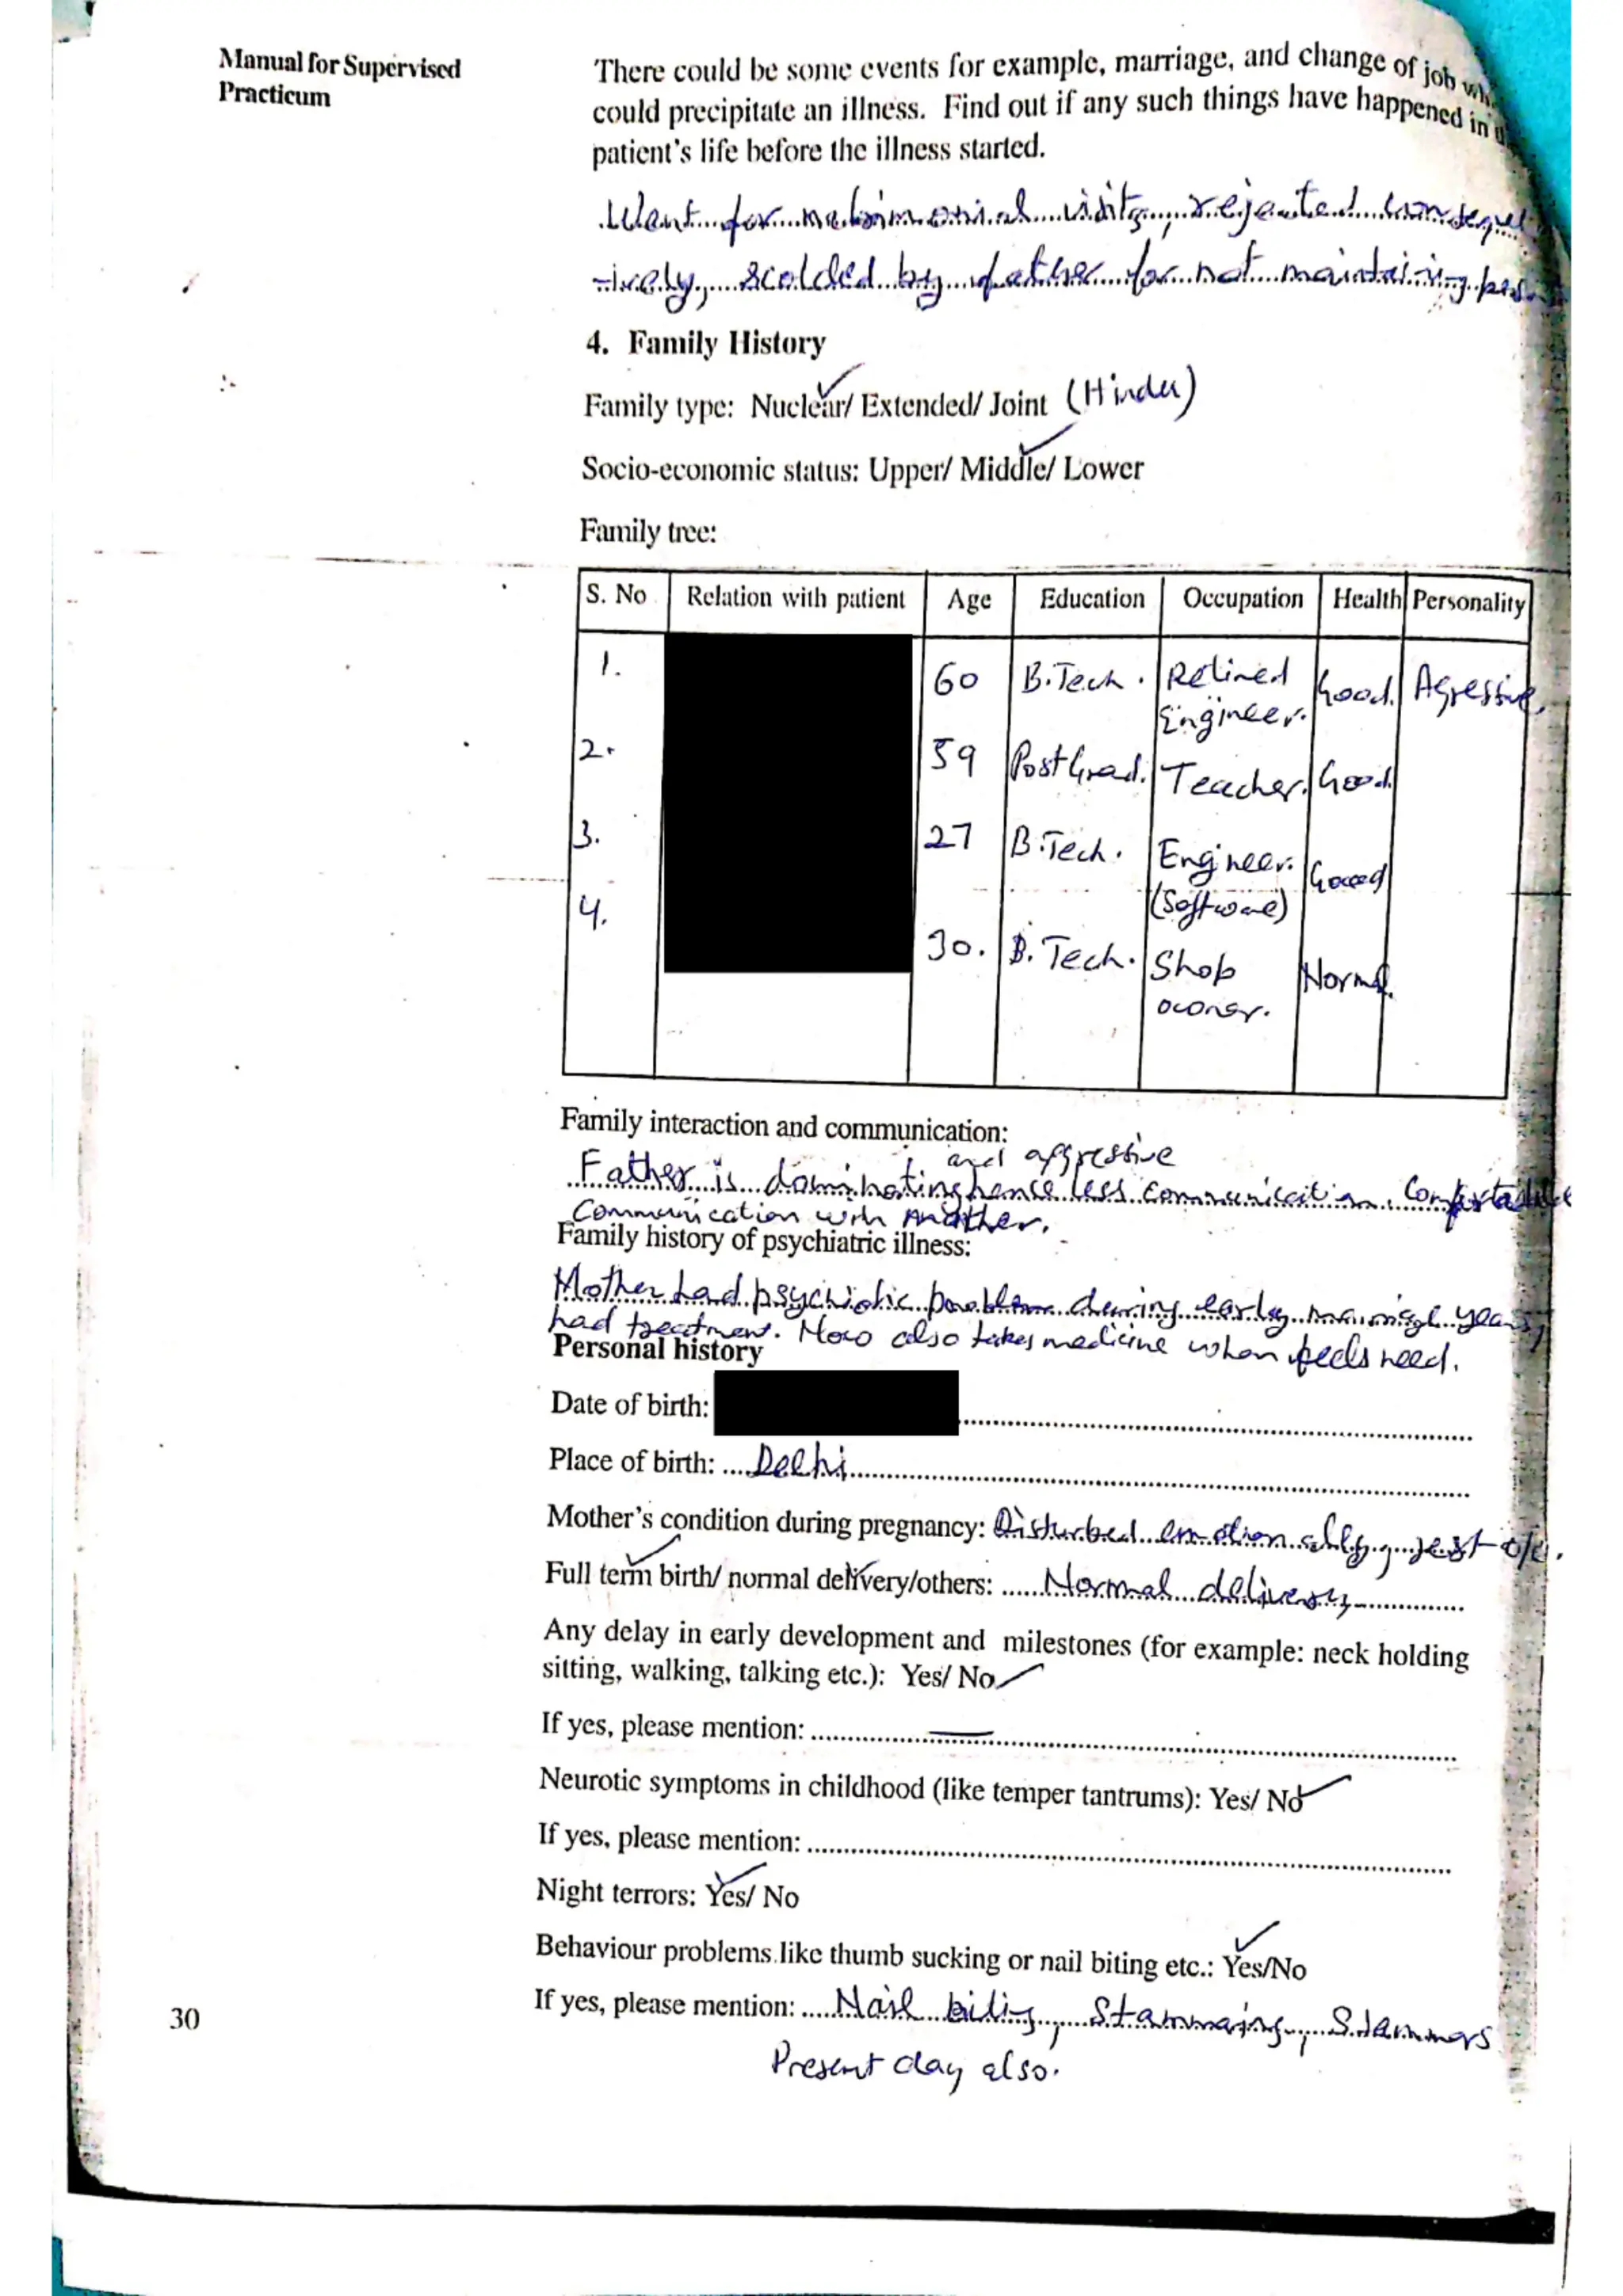 Manual for Supervised
Practicum
There could be some events for example, marriage, and change of job
could precipitate an illness. Find out if any such things have happened in
patient's life before the illness started.
Went for matrimonial visits, rejected consequ
-ively, scolded by father for not maintaining
4. Family History
Family type: Nuclear/ Extended/ Joint (Hindu)
Socio-economic status: Upper/ Middle/ Lower
Family tree:
S. No Relation with patient Age Education Occupation Health Personality
1. 60 B.Tech. Retired Engineer. Good. Agressive,
2. 59 Post Grad. Teacher. Good.
3. 27 B.Tech. Engineer. (Software) Good
4. 30. B.Tech. Shop owner. Normal.
Family interaction and communication:
Father is dominating and aggressive hence less communication. Comfortable
communication with mother.
Family history of psychiatric illness:
Mother had psychiotic problem during early marriage years,
had treatment. Now also takes medicine when feels need.
Personal history
Date of birth:
Place of birth: Delhi
Mother's condition during pregnancy: Disturbed emotionally, rest o/c.
Full term birth/ normal delivery/others: Normal delivery
Any delay in early development and milestones (for example: neck holding
sitting, walking, talking etc.): Yes/ No
If yes, please mention: —
Neurotic symptoms in childhood (like temper tantrums): Yes/ No
If yes, please mention:
Night terrors: Yes/ No
Behaviour problems like thumb sucking or nail biting etc.: Yes/No
If yes, please mention: Nail biting, Stammaring, Stammers
Present day also.
30